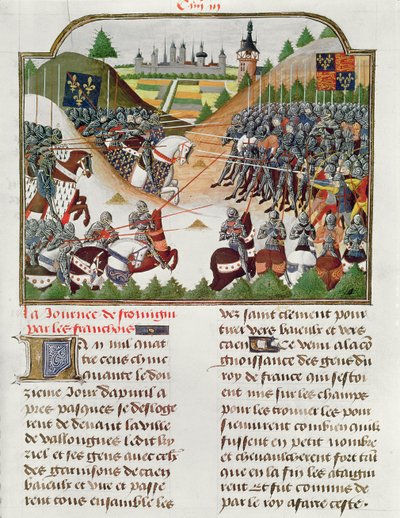 La Journee de fromigni
par les francois
An mil quatre
cens cinc
quante le dou
zieme jour dapuril a
pres pasques se desloge
rent de deuant la ville
de vallongnes ledit ky
ziel et ses gens auec ceulx
des garnisons de caen
baieulx et vire et passe
rent tous ensamble les
vez saint clement pour
tirer vers baieulx et vers
caen Ce vein a la co
gnoissance des gens du
roy de france qui sestoi
ent mis sur les champs
pour les trouuer les pour
sieuirent combien quilz
fussent en petit nombre
et cheuaucherent fort tant
que en la fin les ataigni
rent Et fut commis de
par le roy a faire ceste